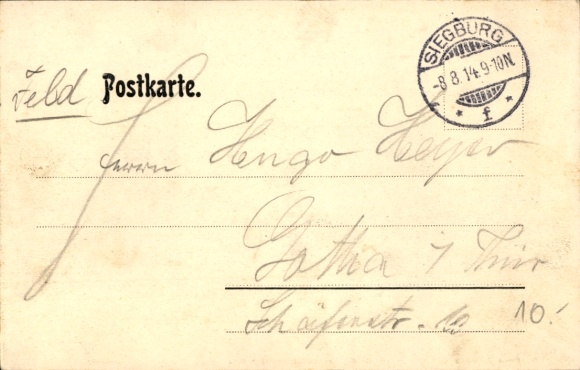 SIEGBURG
-8 8.14.9-10N.
* f *
Feld Postkarte.
Herrn Hugo Heyer
Gotha i/Thür
Schäferstr. 10
10.-